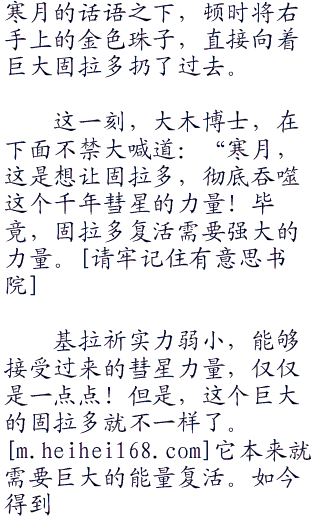 寒月的话语之下，顿时将右
手上的金色珠子，直接向着
巨大固拉多扔了过去。
这一刻，大木博士，在
下面不禁大喊道：“寒月，
这是想让固拉多，彻底吞噬
这个千年彗星的力量！毕
竟，固拉多复活需要强大的
力量。[请牢记住有意思书
院]
基拉祈实力弱小，能够
接受过来的彗星力量，仅仅
是一点点！但是，这个巨大
的固拉多就不一样了。
[m.heihei168.com]它本来就
需要巨大的能量复活。如今
得到